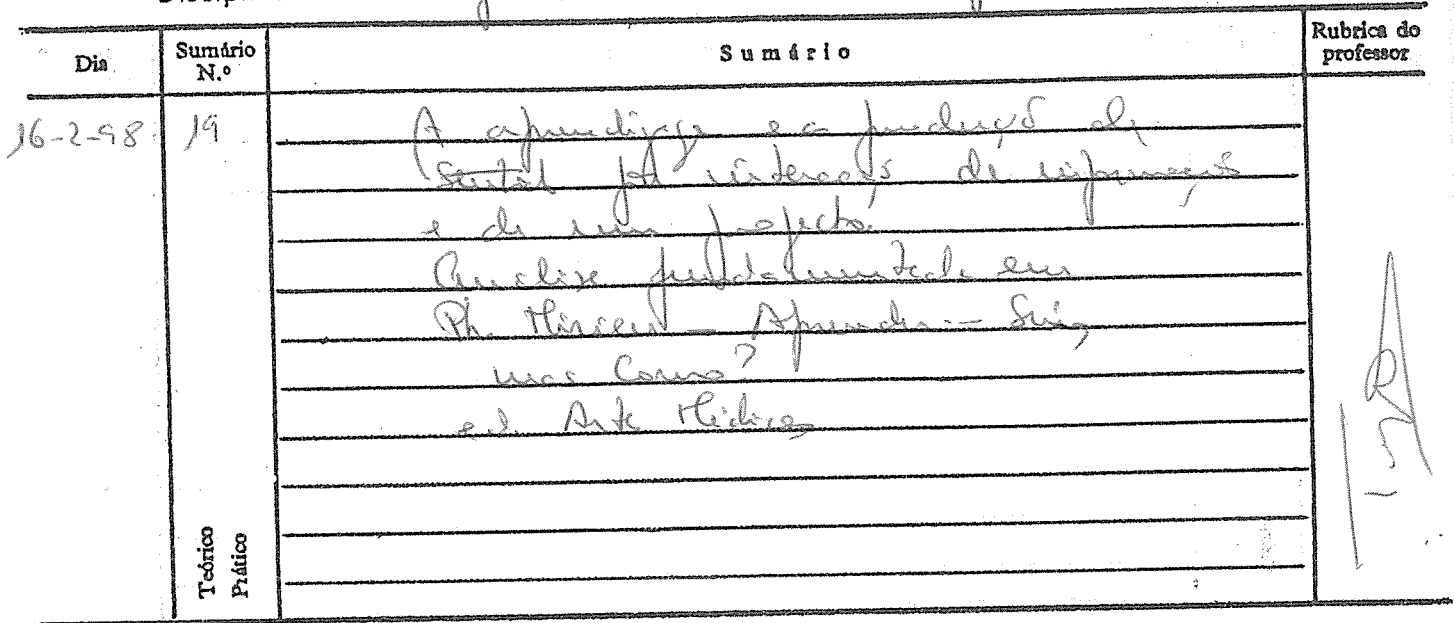 Dia
Sumário N.º
Sumário
Rubrica do professor
16-2-98
19
A aprendizagem e a produção de
sentido por interacção de informações
e de um projecto.
Análise fundamentada em
Ph. Mirieu - Aprender - Sim,
mas Como?
ed. Arte Médicas
Teórico
Prático